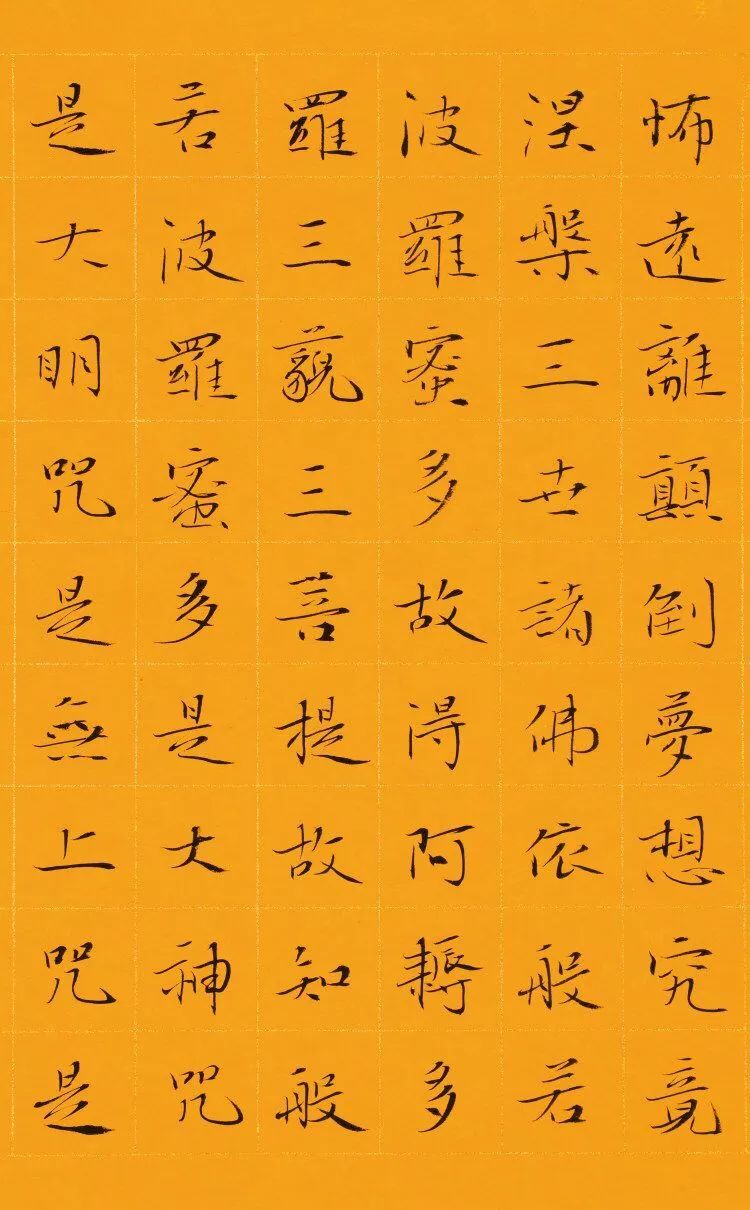 怖遠離顛倒夢想究竟
涅槃三世諸佛依般若
波羅蜜多故得阿耨多
羅三藐三菩提故知般
若波羅蜜多是大神咒
是大明咒是無上咒是